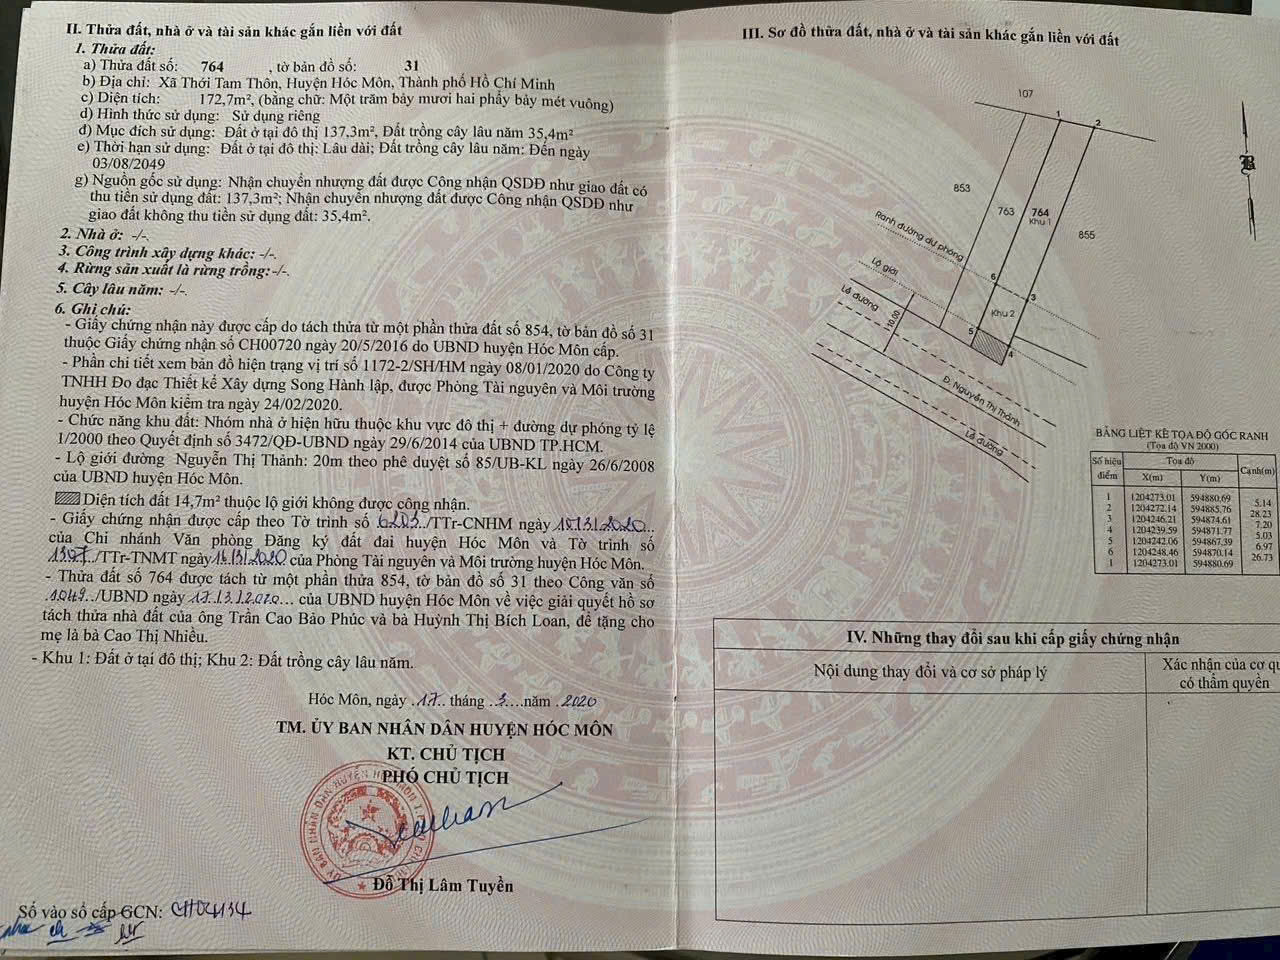 II. Thửa đất, nhà ở và tài sản khác gắn liền với đất
1. Thửa đất:
a) Thửa đất số: 764 , tờ bản đồ số: 31
b) Địa chỉ: Xã Thới Tam Thôn, Huyện Hóc Môn, Thành phố Hồ Chí Minh
c) Diện tích: 172,7m², (bằng chữ: Một trăm bảy mươi hai phẩy bảy mét vuông)
d) Hình thức sử dụng: Sử dụng riêng
đ) Mục đích sử dụng: Đất ở tại đô thị 137,3m², Đất trồng cây lâu năm 35,4m²
e) Thời hạn sử dụng: Đất ở tại đô thị: Lâu dài; Đất trồng cây lâu năm: Đến ngày
03/08/2049
g) Nguồn gốc sử dụng: Nhận chuyển nhượng đất được Công nhận QSDĐ như giao đất có
thu tiền sử dụng đất: 137,3m²; Nhận chuyển nhượng đất được Công nhận QSDĐ như
giao đất không thu tiền sử dụng đất: 35,4m².
2. Nhà ở: -/-.
3. Công trình xây dựng khác: -/-.
4. Rừng sản xuất là rừng trồng: -/-.
5. Cây lâu năm: -/-.
6. Ghi chú:
- Giấy chứng nhận này được cấp do tách thửa từ một phần thửa đất số 854, tờ bản đồ số 31
thuộc Giấy chứng nhận số CH00720 ngày 20/5/2016 do UBND huyện Hóc Môn cấp.
- Phần chi tiết xem bản đồ hiện trạng vị trí số 1172-2/SH/HM ngày 08/01/2020 do Công ty
TNHH Đo đạc Thiết kế Xây dựng Song Hành lập, được Phòng Tài nguyên và Môi trường
huyện Hóc Môn kiểm tra ngày 24/02/2020.
- Chức năng khu đất: Nhóm nhà ở hiện hữu thuộc khu vực đô thị + đường dự phóng tỷ lệ
1/2000 theo Quyết định số 3472/QĐ-UBND ngày 29/6/2014 của UBND TP.HCM.
- Lộ giới đường Nguyễn Thị Thảnh: 20m theo phê duyệt số 85/UB-KL ngày 26/6/2008
của UBND huyện Hóc Môn.
Diện tích đất 14,7m² thuộc lộ giới không được công nhận.
- Giấy chứng nhận được cấp theo Tờ trình số 6203../TTr-CNHM ngày 10/3/2020..
của Chi nhánh Văn phòng Đăng ký đất đai huyện Hóc Môn và Tờ trình số
1307../TTr-TNMT ngày 16/3/2020 của Phòng Tài nguyên và Môi trường huyện Hóc Môn.
- Thửa đất số 764 được tách từ một phần thửa 854, tờ bản đồ số 31 theo Công văn số
.1049../UBND ngày 17/3/2020... của UBND huyện Hóc Môn về việc giải quyết hồ sơ
tách thửa nhà đất của ông Trần Cao Bảo Phúc và bà Huỳnh Thị Bích Loan, để tặng cho
mẹ là bà Cao Thị Nhiều.
- Khu 1: Đất ở tại đô thị; Khu 2: Đất trồng cây lâu năm.
Hóc Môn, ngày .17.. tháng ..3....năm .2020
TM. ỦY BAN NHÂN DÂN HUYỆN HÓC MÔN
KT. CHỦ TỊCH
PHÓ CHỦ TỊCH
Đỗ Thị Lâm Tuyền
Số vào sổ cấp GCN: CH04134
III. Sơ đồ thửa đất, nhà ở và tài sản khác gắn liền với đất
107
1
2
B
853
763
764
Khu 1
855
Ranh đường dự phóng
Lộ giới
Lề đường
10.00
6
3
Khu 2
5
4
Đ. Nguyễn Thị Thảnh
Lề đường
BẢNG LIỆT KÊ TỌA ĐỘ GÓC RANH
(Tọa độ VN 2000)
Số hiệu điểm Tọa độ Cạnh(m)
X(m) Y(m)
1 1204273.01 594880.69
5.14
2 1204272.14 594885.76
28.23
3 1204246.21 594874.61
7.20
4 1204239.59 594871.77
5.03
5 1204242.06 594867.39
6.97
6 1204248.46 594870.14
26.73
1 1204273.01 594880.69
IV. Những thay đổi sau khi cấp giấy chứng nhận
Nội dung thay đổi và cơ sở pháp lý
Xác nhận của cơ qu
có thẩm quyền